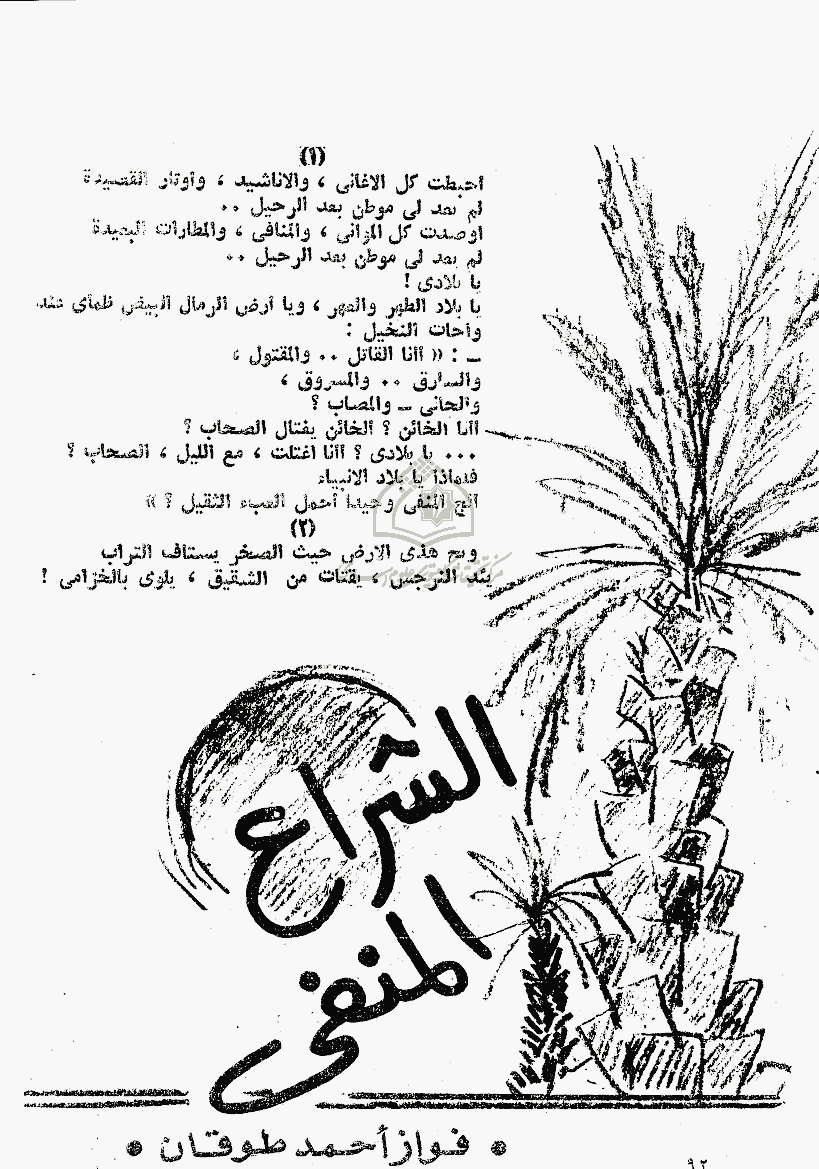 (١)
أحبطت كل الاغانى ، والاناشيد ، وأوتار القصيدة
لم يعد لى موطن بعد الرحيل ٠٠
اوصدت كل الموانى ، والمنافى ، والمطارات البعيدة
لم يعد لى موطن بعد الرحيل ٠٠
يا بلادى !
يا بلاد الطهر والعهر ، ويا ارض الرمال البيض ظمأى عند
واحات النخيل :
ــ : (( أأنا القاتل ٠٠ والمقتول ،
والسارق ٠٠ والمسروق ،
والجانى ــ والمصاب ؟
أأنا الخائن ؟ الخائن يغتال الصحاب ؟
٠٠٠ يا بلادى ؟ أأنا اغتلت ، مع الليل ، الصحاب ؟
فلماذا يا بلاد الانبياء
ألج المنفى وحيدا أحمل العبء الثقيل ؟ ))
(٢)
ويح هذى الارض حيث الصخر يستاف التراب
يئد النرجس ، يقتات من الشقيق ، يلوى بالخزامى !
الشراع
المنفى
• فواز أحمد طوقان •
٩٢